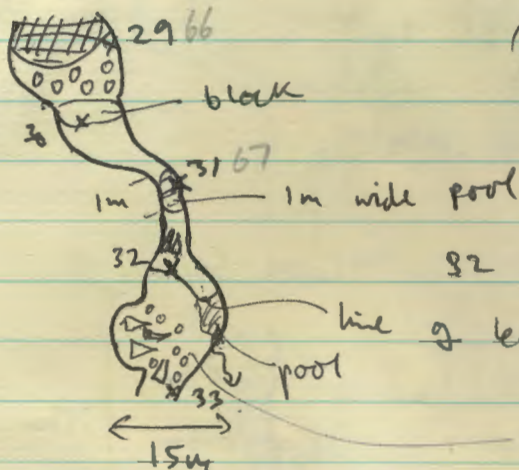 29 66
block
30
31 67
1m
1m wide pool
32
32
line of
pool
33
15m